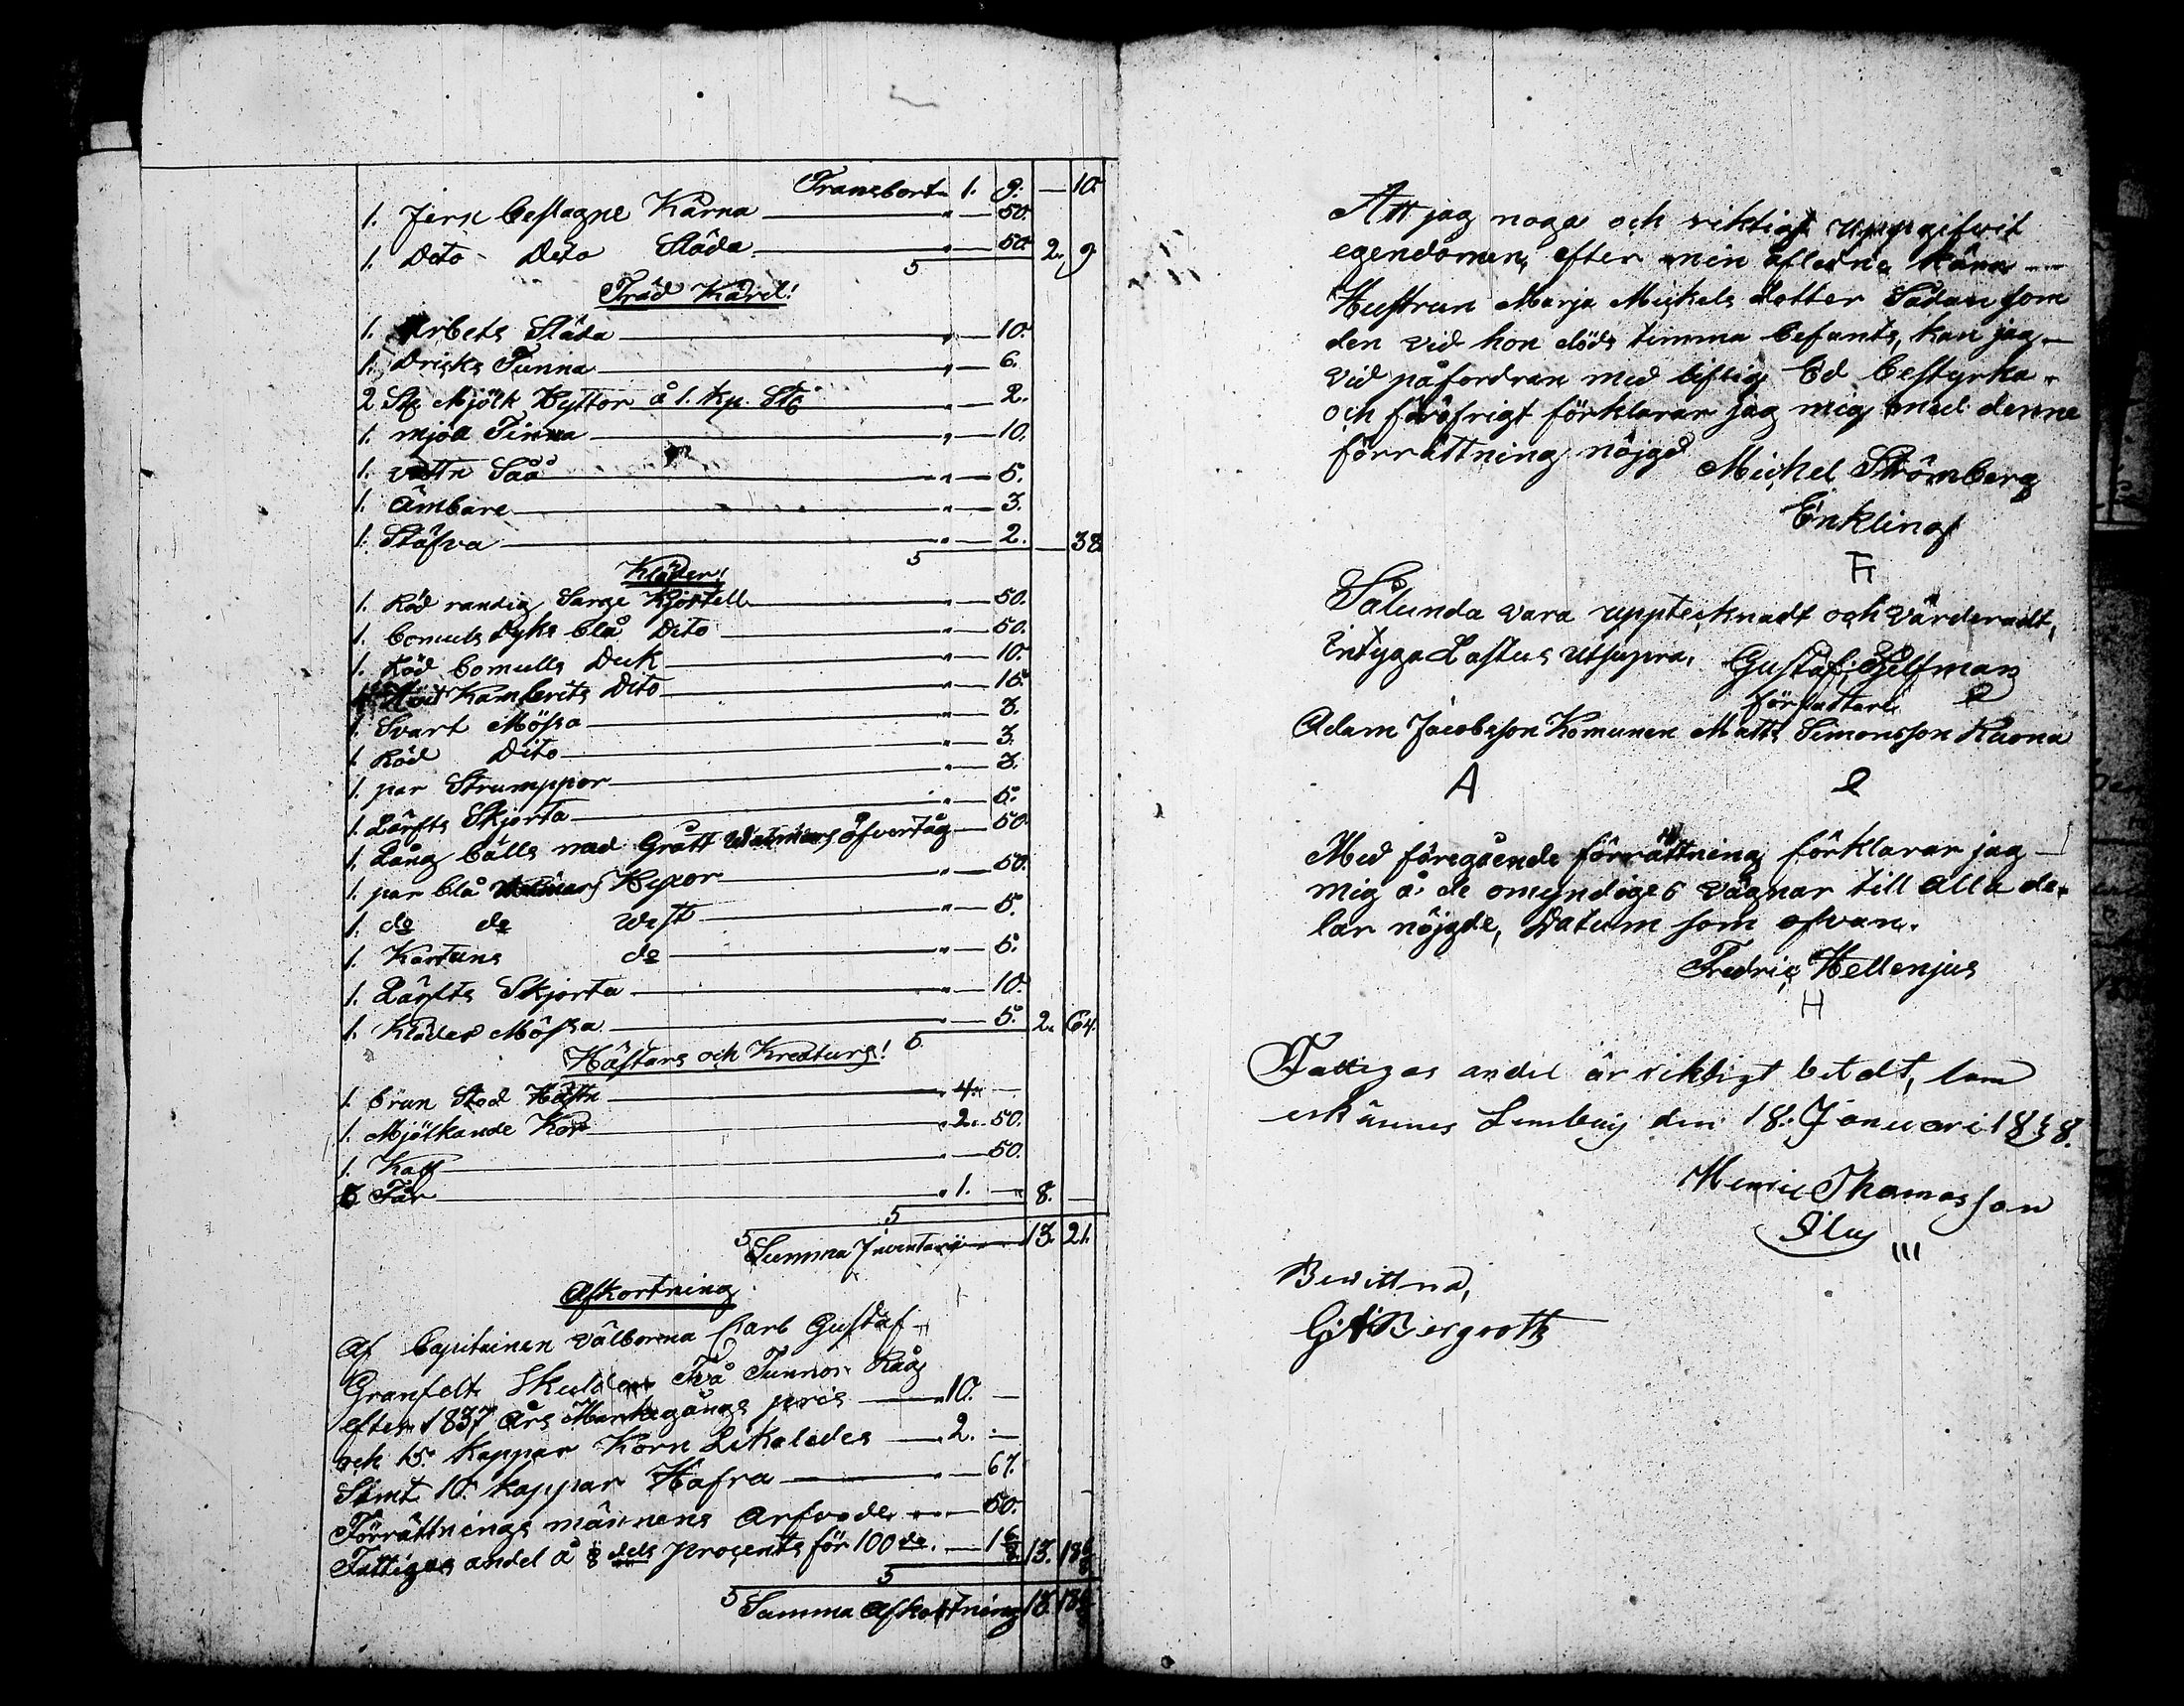 Transbort 1. 9. — 10.
1. Jern beslagne Kärna — 50.
1. Dito Dito Släda — 50. 2. 9.
5
Träd Kärel!
1. Arbets Släda — 10.
1. Dricks Tunna — 6.
2 St. Mjölk Byttor å 1. kp. St. — 2.
1. mjöl Tinna — 10.
1. vattn Såå — 5.
1. Ämbare — 3.
1. Stäfva — 2. — 38.
5
Kläder!
1. Röd randig Sarge Kjortell — 50.
1. bomuls dyks blå Dito — 50.
1. Röd bomulls Duk — 10.
1. Röd Kamberits Dito — 15
1. Svart Mössa — 3.
1 Röd Dito — 3.
1. par Strumppor — 3.
1. Lärfts Skjorta — 5.
1. Lång bälls med Grått Walmars öfvertåg — 50
1. par blå Walmars Byxor — 50.
1. do do West — 5.
1. Kartuns do — 5.
1. Lärfts Skjorta — 10.
1. Klädes Mössa — 5. 2. 64.
5
Hästars och Kreaturs!
1. brun Stod Hästn — 4. —
1. Mjölkande Kor — 2. 50.
1. Kalf — 50.
5 Får — 1. — 8. —
5
5 Summa Inventarii — 13. 21.
Afkortning
Af Capitainen välborna Carl Gustaf
Granfelt Skulden Två Tunnor Råg
efter 1837 Års Markegångs pris — 10. —
och 15. kappar Korn Likaledes — 2. —
Samt 10. kappar Hafra — 67.
Förrättnings männens Arfvode — 50.
Fattigas andel å 1/8 dels procents för 100 de. — 1 6/8 13. 18 6/8
5
5 Summa Afkortning 13. 18 6/8
Att jag noga och riktigt uppgifvit
egendomen, efter min aflidne kära
Hustrun Marja Mickels dotter Sådan som
den vid hon döds timma befants, kan jag
vid påfordran med liflig Ed bestyrka
och föröfrigt förklarar jag mig med denne
förrättning nöjgd Michel Strömberg
Enkling
Sålunda vara upptecknadt och värderadt,
Intyga Lastus utsupra, Gustaf Hjelfman
författare
Adam Jacobsson Komunen Matts Simonsson Kaona
A
Med föregående förrättning förklarar jag
mig å de omyndiges vägnar till alla de-
lar nöjgde, Datum som ofvan.
Fredric Hellenjus
H
Fattigas andel är riktigt betalt, som
erkännes Lembuy den 18. Januari 1838.
Henric Thomasson
Ilus
III
Bewittna,
G A Bergroth